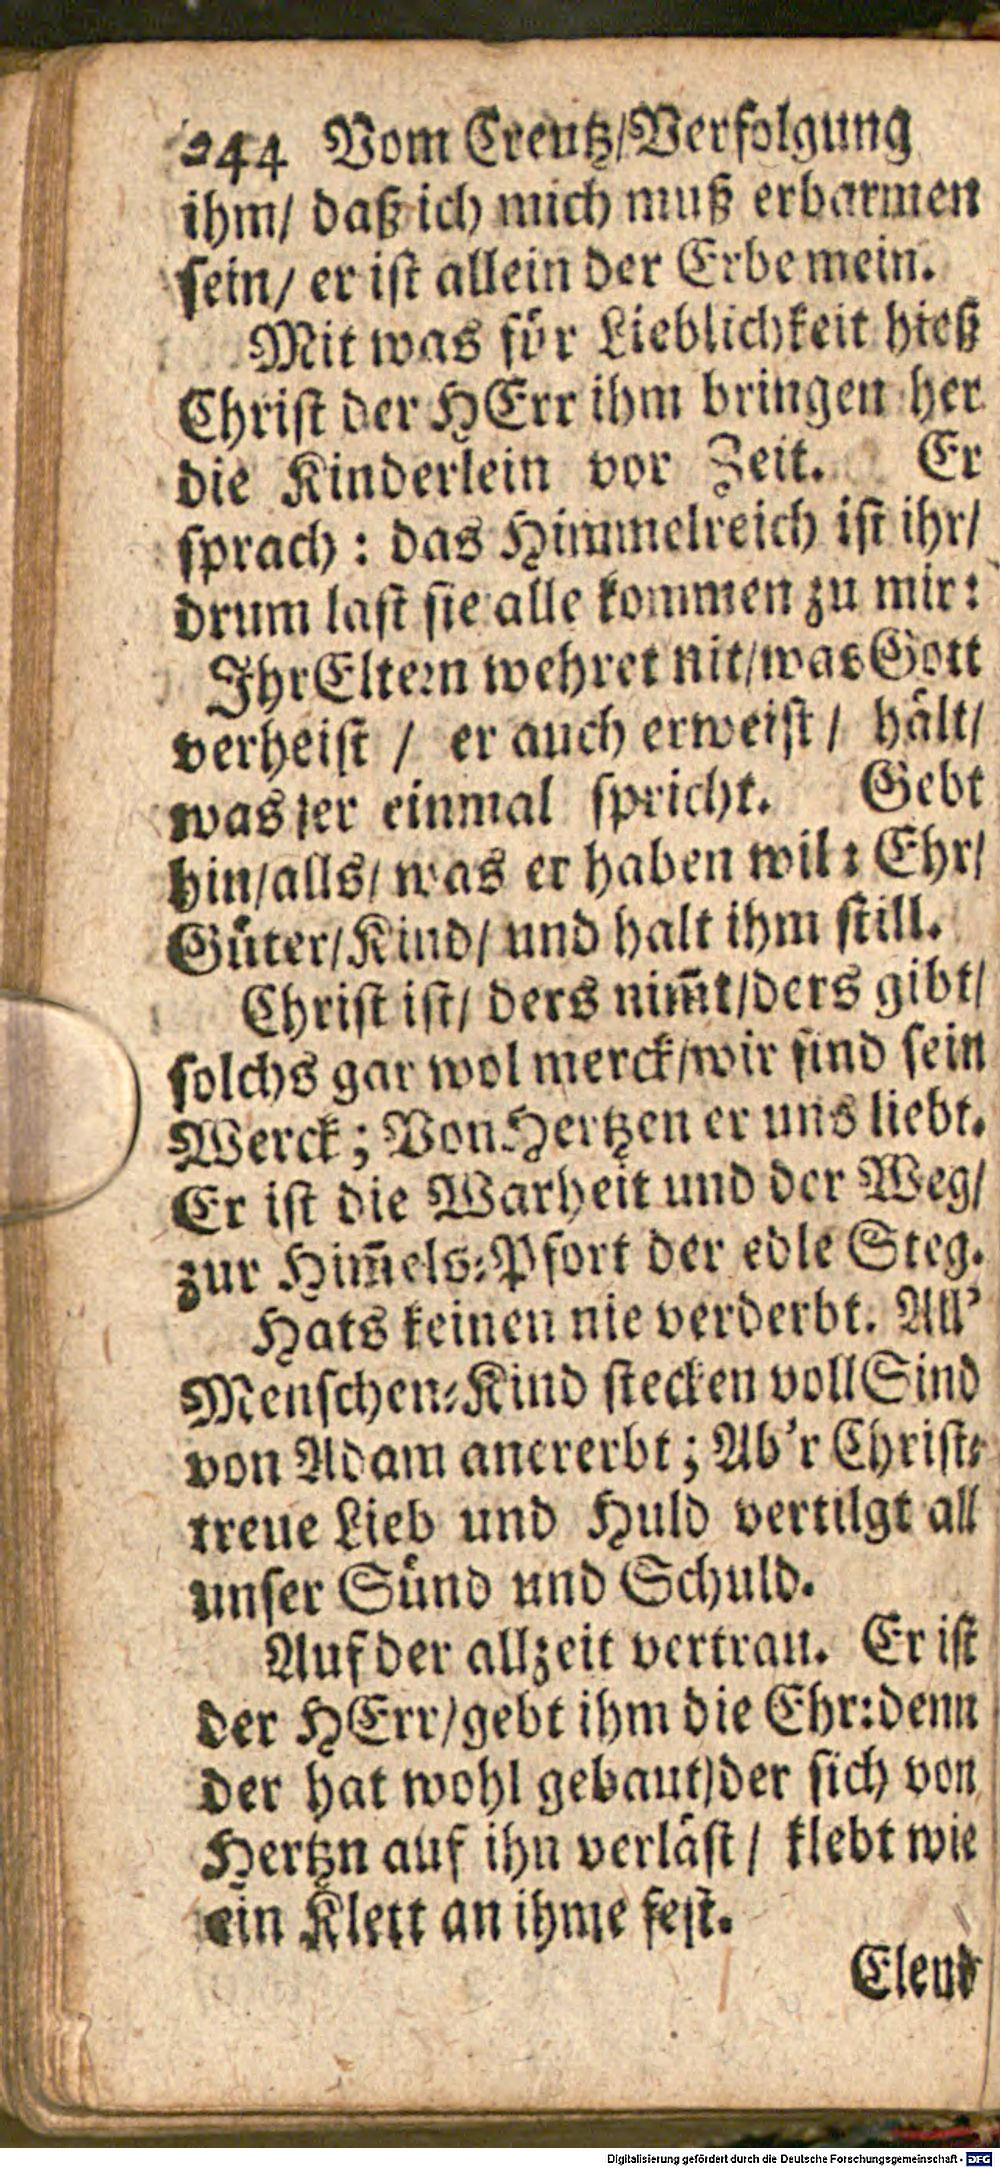 244 Vom Creutz/Verfolgung
ihm/ daß ich mich muß erbarmen
sein/ er ist allein der Erbe mein.
Mit was für Lieblichkeit hieß
Christ der HErr ihm bringen her
die Kinderlein vor Zeit. Er
sprach : das Himmelreich ist ihr/
drum last sie alle kommen zu mir:
Ihr Eltern wehret nit/was Gott
verheist / er auch erweist / hält/
was er einmal spricht. Gebt
hin/alls/ was er haben wil: Ehr/
Güter/Kind/ und halt ihm still.
Christ ist/ ders nim̃t/ders gibt/
solchs gar wol merck/wir sind sein
Werck ; Von Hertzen er uns liebt.
Er ist die Warheit und der Weg/
zur Him̃els-Pfort der edle Steg.
Hats keinen nie verderbt. All'
Menschen-Kind stecken voll Sind
von Adam anererbt ; Ab'r Christ-
treue Lieb und Huld vertilgt all
unser Sünd und Schuld.
Auf der allzeit vertrau. Er ist
der HErr/gebt ihm die Ehr:denn
der hat wohl gebaut/der sich von
Hertzn auf ihn verläst / klebt wie
ein Klett an ihme fest.
Elend
Digitalisierung gefördert durch die Deutsche Forschungsgemeinschaft - DFG